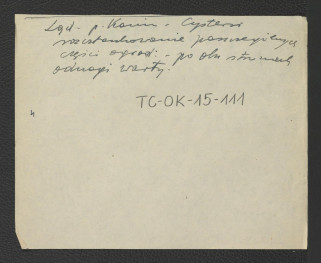 Ląd - p. Konin - Cystersi
rozczłonkowanie poszczególnych
części ogrod: - po obu stronach
odnogi Warty.
TC-OK-15-111